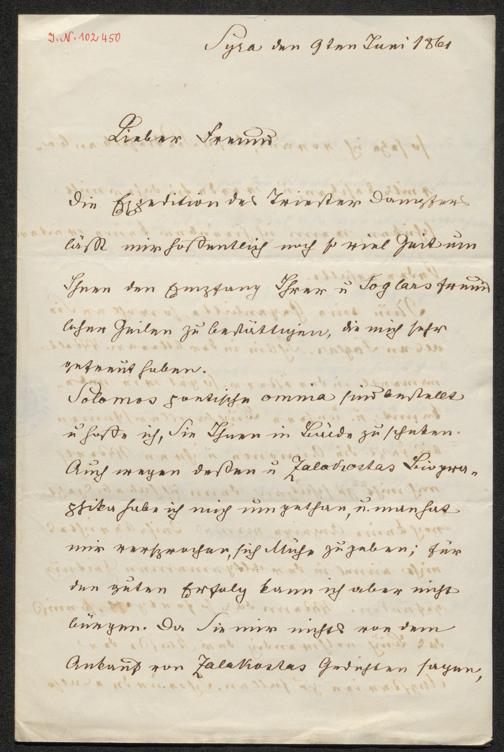 I.N. 102450
Syra den 9ten Juni 1861
Lieber Freund
Die Expedition des Triester Dampfers
läßt mir hoffentlich noch so viel Zeit um
Ihnen den Empfang Ihrer u Foglars freund
lichen Zeilen zu bestättigen, die mich sehr
gefreut haben.
Solomos poetische omnia sind bestellt
u hoffe ich, sie Ihnen in Bälde zu schicken.
Auch wegen dessen u Zalakostas Biogra-
phika habe ich mich umgethan, u. man hat
mir versprochen, sich Mühe zu geben; für
den guten Erfolg kann ich aber nicht
bürgen. Da Sie mir nichts von dem
Ankauf von Zalakostas Gedichten sagen,